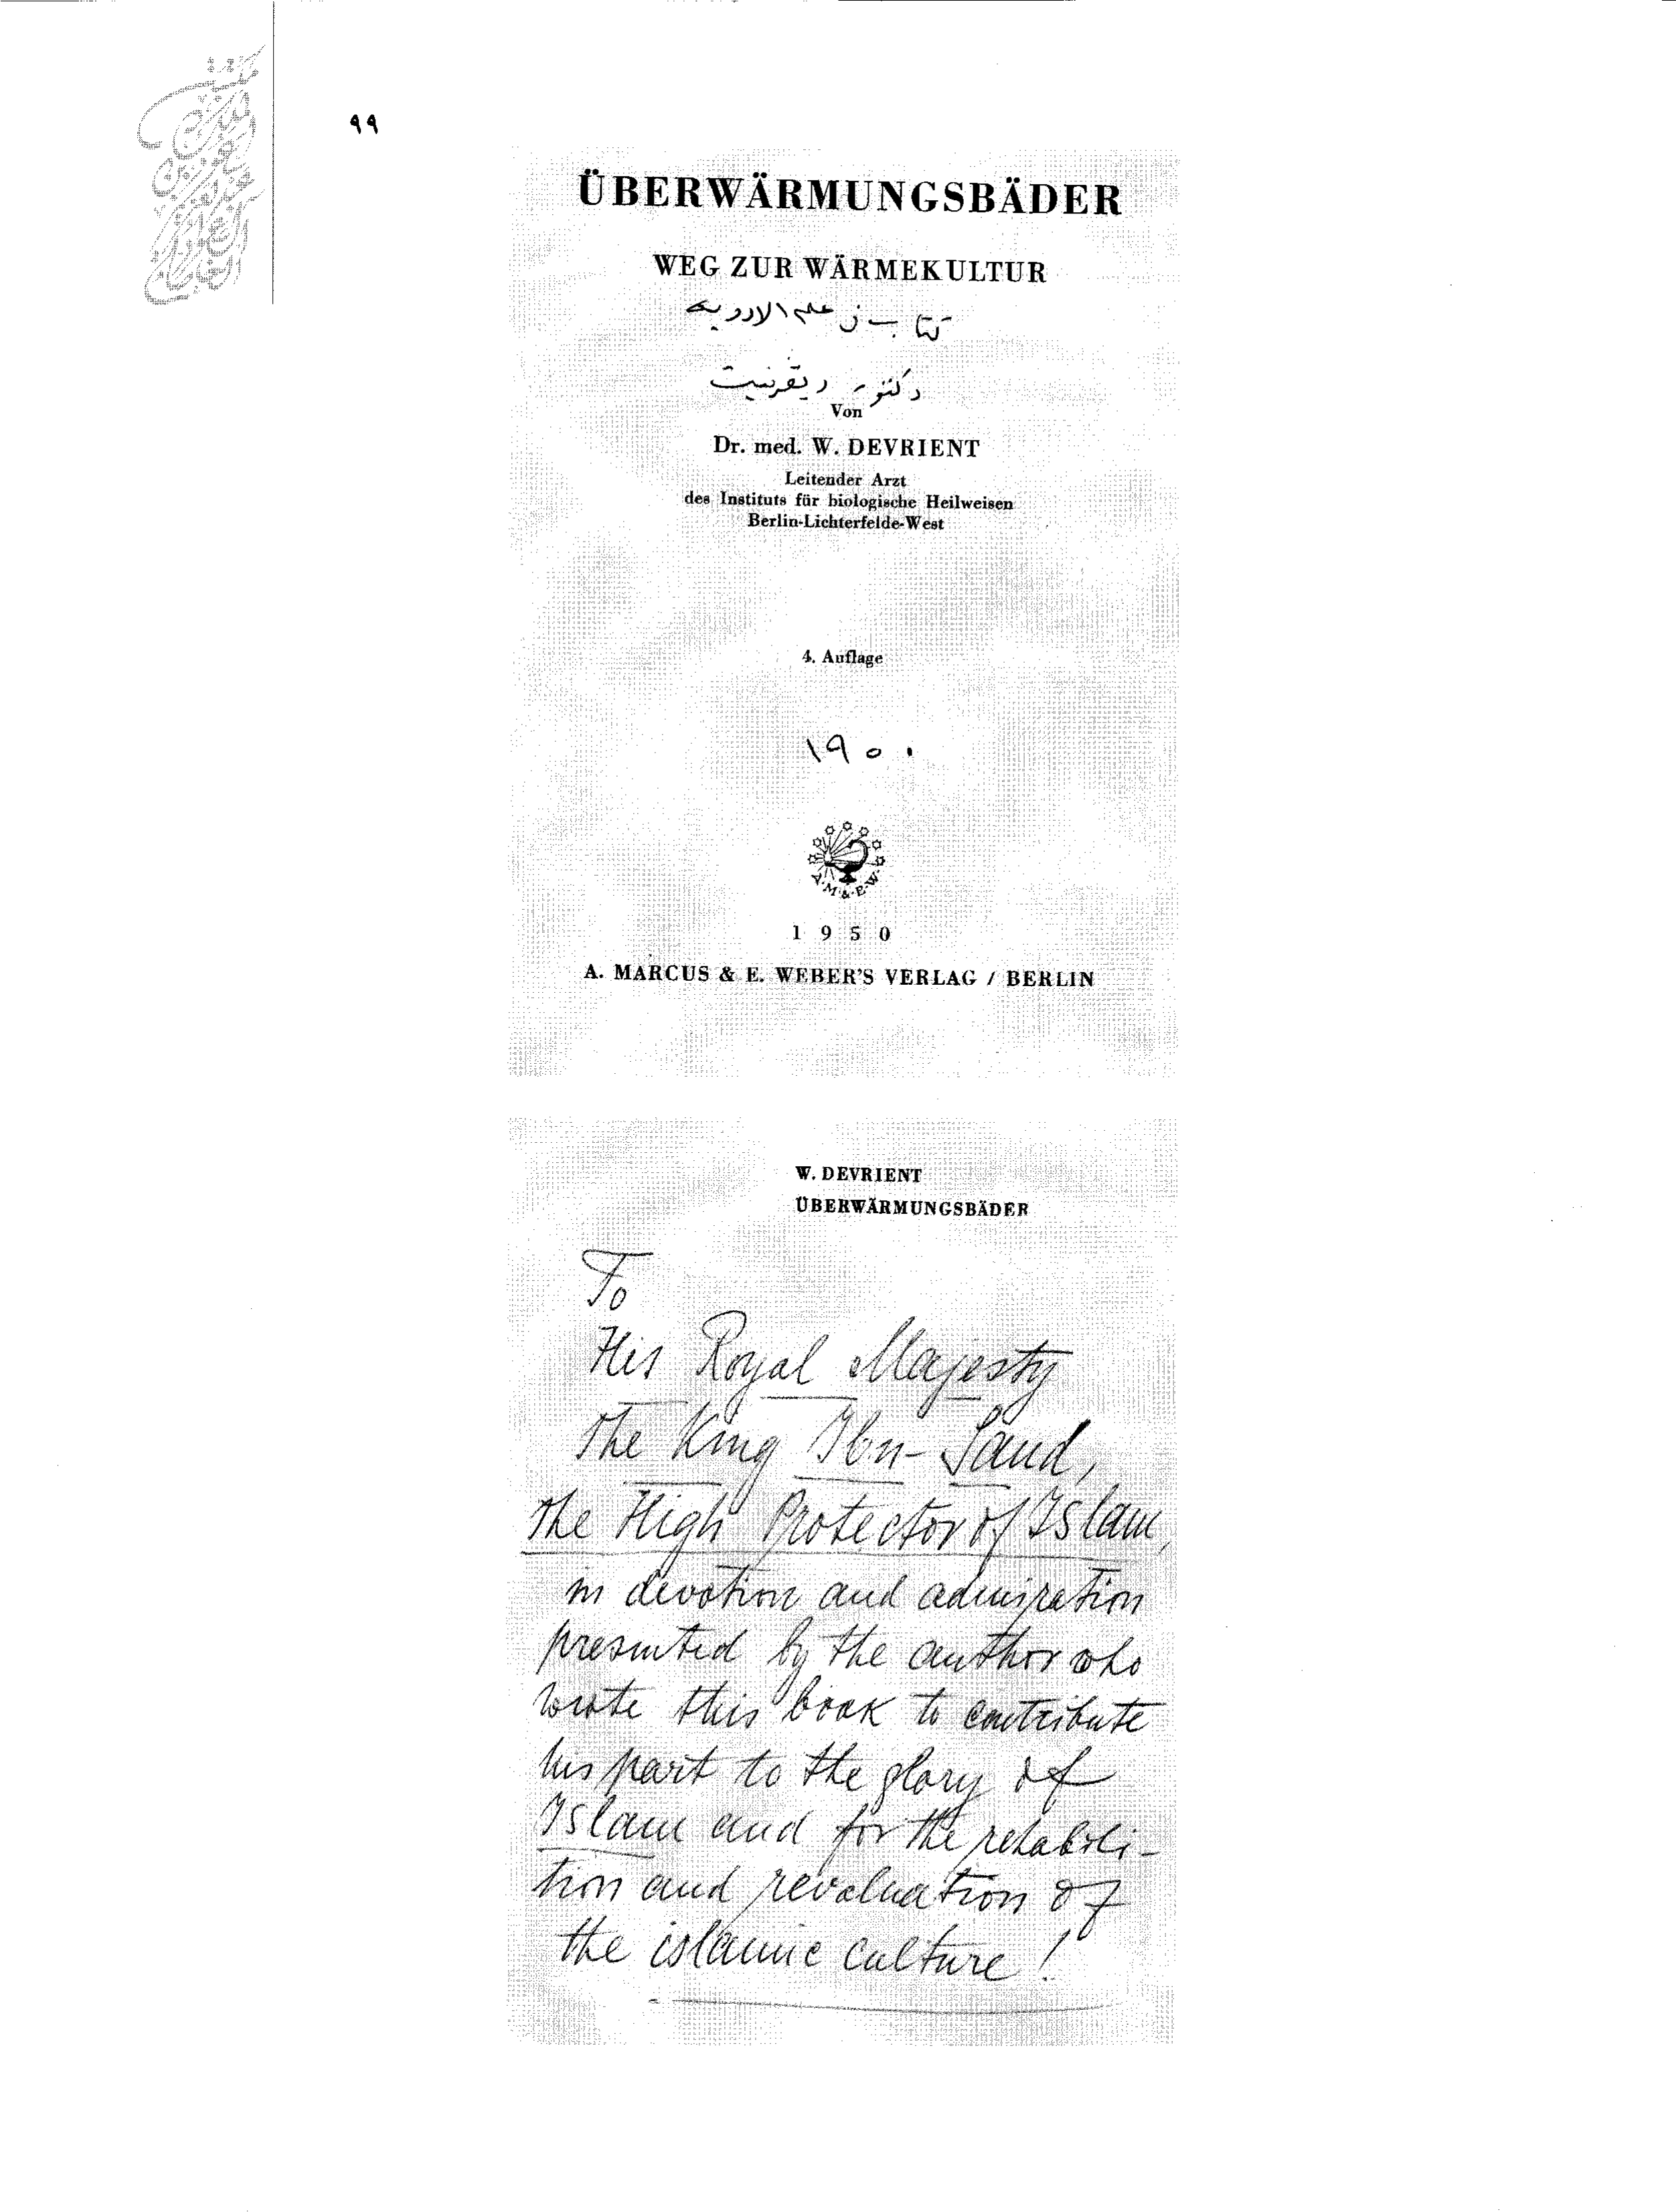 ٩٩
ÜBERWÄRMUNGSBÄDER
WEG ZUR WÄRMEKULTUR
كتاب في علم الادويه
دكتور ديفرنيت
Von
Dr. med. W. DEVRIENT
Leitender Arzt
des Instituts für biologische Heilweisen
Berlin-Lichterfelde-West
4. Auflage
١٩٥٠
A·M·&·E·W·
1950
A. MARCUS & E. WEBER'S VERLAG / BERLIN
W. DEVRIENT
ÜBERWÄRMUNGSBÄDER
To
His Royal Majesty
the King Ibn-Saud,
the High Protector of Islam,
in devotion and admiration
presented by the author who
wrote this book to contribute
his part to the glory of
Islam and for the rehabili-
tion and revaluation of
the islamic culture!